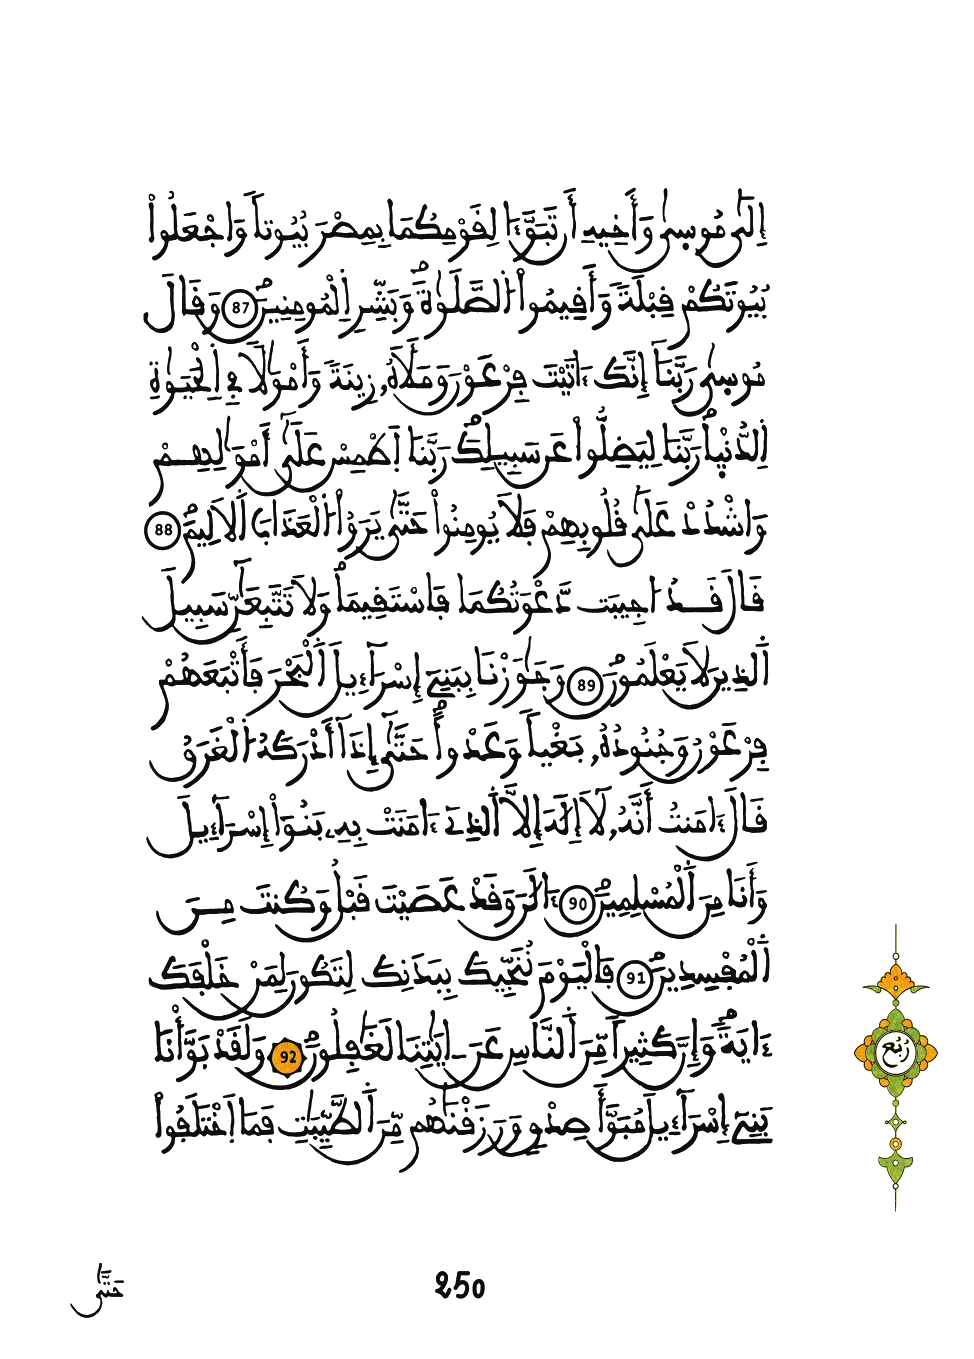 إِلَىٰ مُوسِىٰ وَأَخِيهِ أَن تَبَوَّءَا لِقَوْمِكُمَا بِمِصْرَ بُيُوتاً وَاجْعَلُواْ
بُيُوتَكُمْ قِبْلَةً وَأَقِيمُواْ اُلصَّلَوٰةَ وَبَشِّرِ اِلْمُومِنِينَ 87 وَقَالَ
مُوسِىٰ رَبَّنَا إِنَّكَ ءَاتَيْتَ فِرْعَوْنَ وَمَلَأَهُۥ زِينَةً وَأَمْوَٰلاً فِي اِلْحَيَوٰةِ
اِلدُّنْيِا رَبَّنَا لِيَضِلُّواْ عَن سَبِيلِكَ رَبَّنَا اَطْمِسْ عَلَىٰ أَمْوَٰلِهِمْ
وَاشْدُدْ عَلَىٰ قُلُوبِهِمْ فَلَا يُومِنُواْ حَتَّىٰ يَرَوُاْ اُلْعَذَابَ اَلَالِيمَ 88
قَالَ قَدُ ا۟جِيبَت دَّعْوَتُكُمَا فَاسْتَقِيمَا وَلَا تَتَّبِعَٰنِّ سَبِيلَ
اَلذِينَ لَا يَعْلَمُونَ 89 وَجَٰوَزْنَا بِبَنِي إِسْرَآءِيلَ اَلْبَحْرَ فَأَتْبَعَهُمْ
فِرْعَوْنُ وَجُنُودُهُۥ بَغْياً وَعَدْواً حَتَّىٰ إِذَا أَدْرَكَهُ اُلْغَرَقُ
قَالَ ءَامَنتُ أَنَّهُۥ لَا إِلَٰهَ إِلَّا اَلذِي ءَامَنَتْ بِهِۦ بَنُواْ إِسْرَآءِيلَ
وَأَنَا مِنَ اَلْمُسْلِمِينَ 90 ءَآلَٰنَ وَقَدْ عَصَيْتَ قَبْلُ وَكُنتَ مِنَ
اَلْمُفْسِدِينَ 91 فَالْيَوْمَ نُنَجِّيكَ بِبَدَنِكَ لِتَكُونَ لِمَنْ خَلْفَكَ
ءَايَةً وَإِنَّ كَثِيراً مِّنَ اَلنَّاسِ عَنَ ـ ايَٰتِنَا لَغَٰفِلُونَ 92 وَلَقَدْ بَوَّأْنَا
بَنِي إِسْرَآءِيلَ مُبَوَّأَ صِدْقٍ وَرَزَقْنَٰهُم مِّنَ اَلطَّيِّبَٰتِ فَمَا اَخْتَلَفُواْ
رُبُع
250
حَتَّىٰ